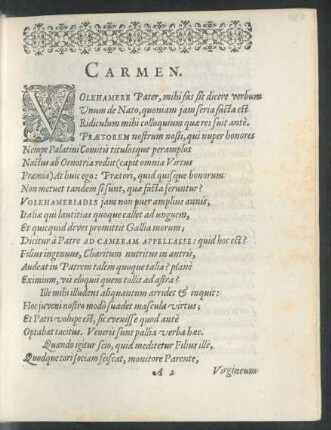 CARMEN.
VOLKHAMERE Pater, mihi fas sit dicere verbum
Unum de Nato, quoniam jam seria facta est
Ridiculum mihi colloquium quæ res fuit antè.
PRÆTOREM nostrum nosti, qui nuper honores
Nempe Palatini Comitis titulosque peramplos
Nactus ab Oenotria rediit (capit omnia Virtus
Præmia) At huic ego: Prætori, quid quisque bonorum
Non metuet tandem si sunt, quæ facta feruntur?
VOLKHAMERIADES jam non puer amplius annis,
Italiæ qui lautitias quoque callet ad unguem,
Et quicquid dives promittit Gallia morum;
Dicitur à Patre AD CAMERAM APPELLASSE: quid hoc est?
Filius ingenuus, Charitum nutritus in antris,
Audeat in Patrem talem quoque talia? planè
Eximium, vis eloquii quem tollit ad astra?
Ille mihi illudens aliquantum arridet & inquit:
Hoc juveni nostro modò suadet mascula virtus;
Et Patri volupe est, sic evenisse quod antè
Optabat tacitus. Veneris sunt pallia verba hæc.
Quando igitur scio, quid meditetur Filius ille,
Quodque tori sociam sciscat, monitore Parente,
A 2
Virgineum